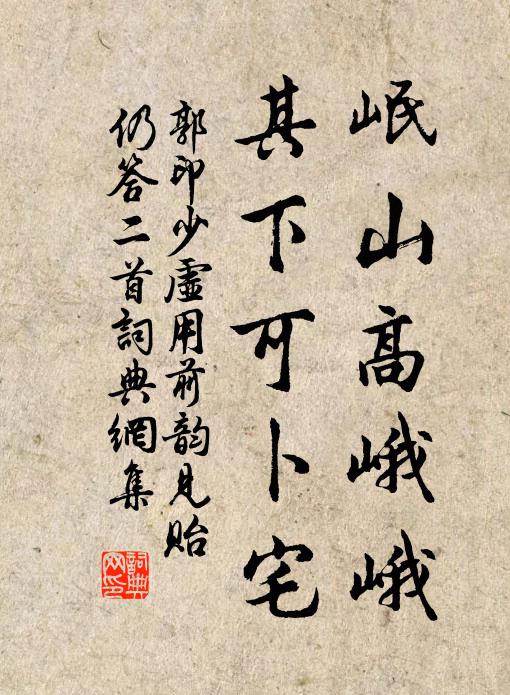 岷山高峨峨
其下可卜宅
郭印少虛用前韵見貽
仍答二首詞典網集
詞典
网印